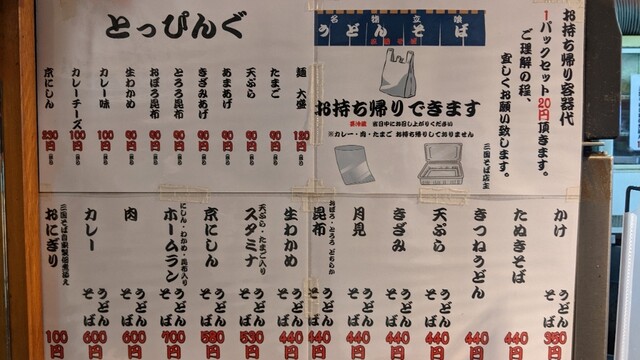 お持ち帰り容器代
1パックセット20円頂きます。
ご理解の程、
宜しくお願い致します。
三国そば店主
名物立喰
うどんそば
お持ち帰りできます
要冷蔵 当日中にお召し上がりください
※カレー・肉・たまご お持ち帰りしておりません
とっぴんぐ
麺 大盛 120円
たまご 90円
天ぷら 90円
あまあげ 90円
きざみあげ 90円
とろろ昆布 90円
おぼろ昆布 90円
生わかめ 90円
カレー味 100円
カレーチーズ 100円
京にしん 230円
かけ うどん そば 350円
たぬきそば 440円
きつねうどん 440円
天ぷら うどん そば 440円
きざみ うどん そば 440円
月見 うどん そば 440円
おぼろ・とろろ どちらか
昆布 うどん そば 440円
生わかめ うどん そば 440円
天ぷら・たまご入り
スタミナ うどん そば 530円
京にしん うどん そば 580円
にしん・わかめ・昆布入り
ホームラン うどん そば 700円
肉 うどん そば 600円
カレー うどん そば 600円
三国そば自家製佃煮添え
おにぎり 100円